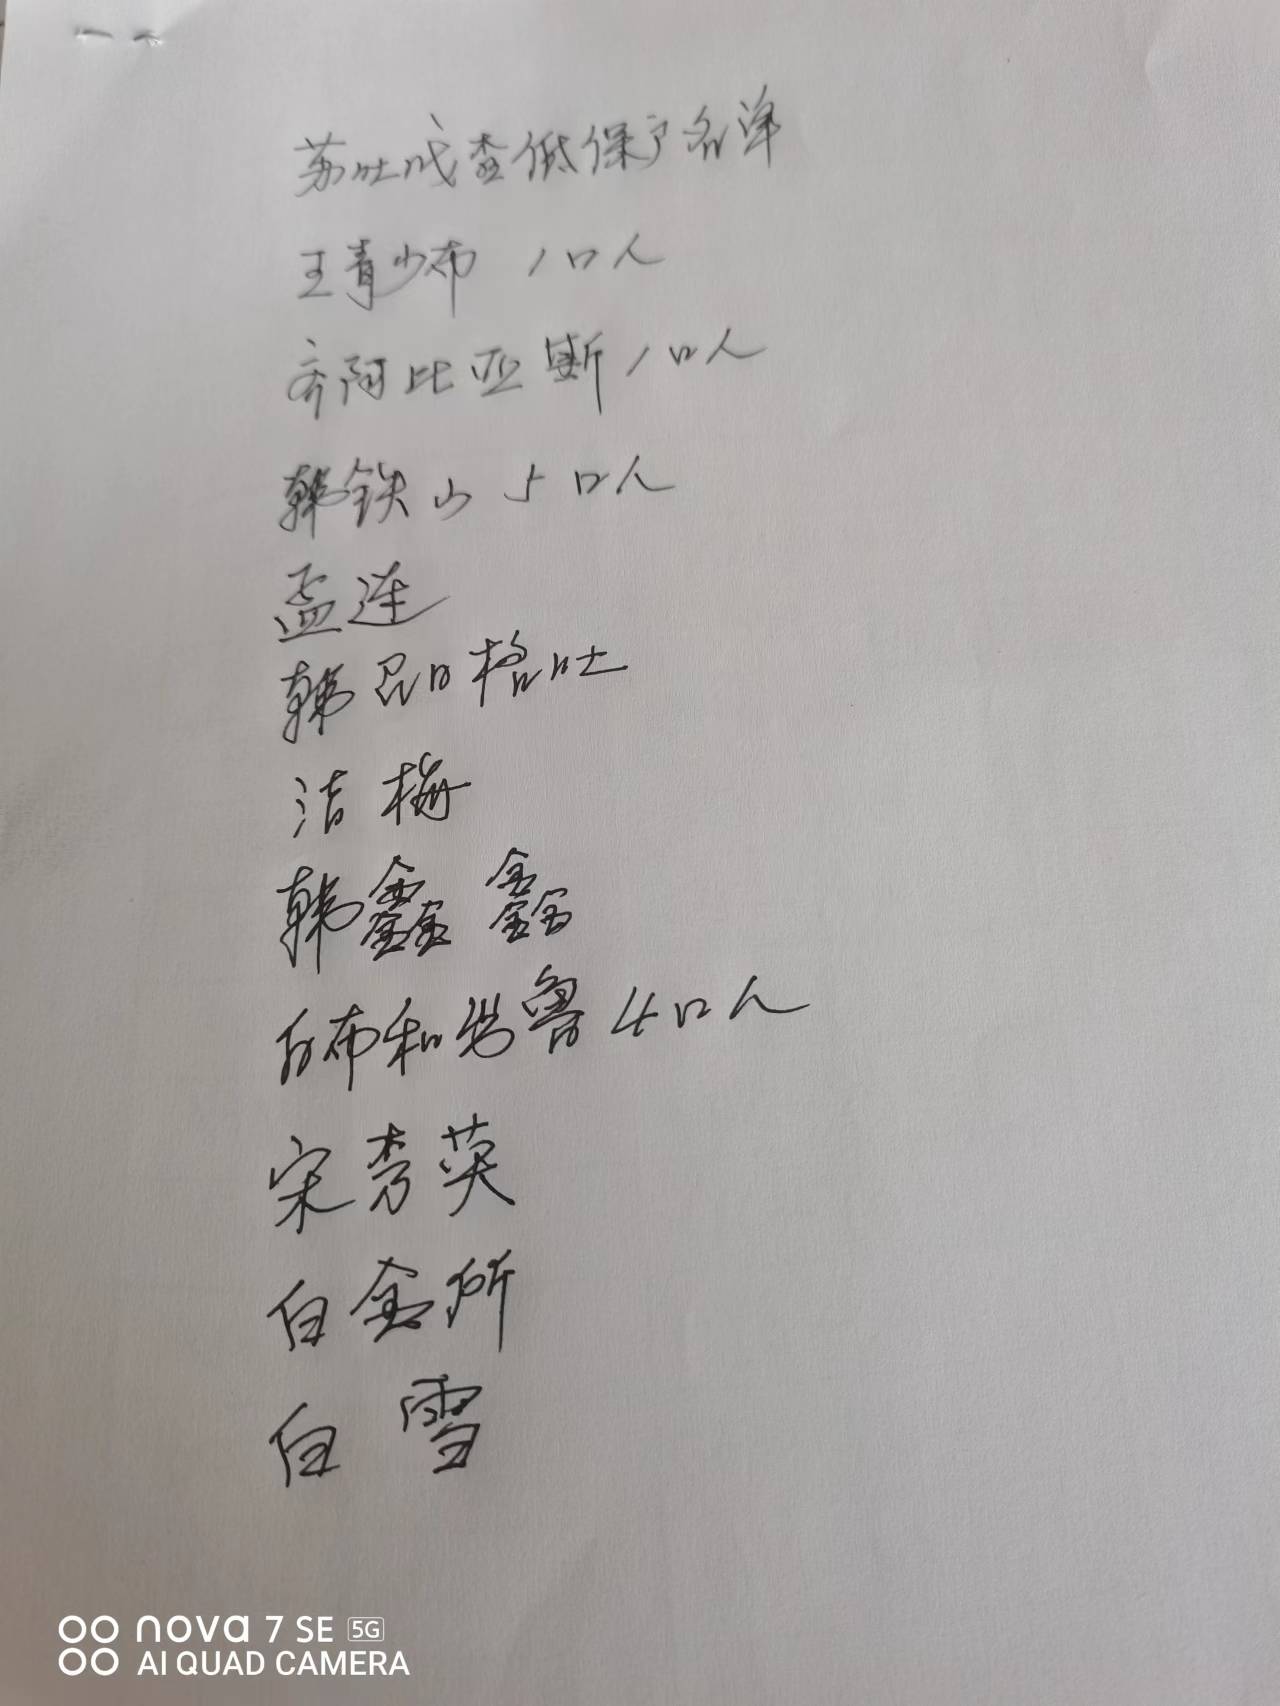 苏吐成查低保户名单
王青少布 1口人
齐阿比亚斯 1口人
韩铁山 5口人
孟连
韩昂格吐
洁梅
韩鑫鑫
布和鲁 4口人
宋秀英
白金所
白雪
nova 7 SE 5G
AI QUAD CAMERA